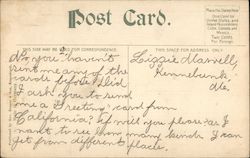 Post Card.
THIS SIDE MAY BE USED FOR CORRESPONDENCE.
THIS SPACE FOR ADDRESS ONLY.
As you haven't
sent me any of the
cards before did
I ask you to send
me a Greeting card from
California? if will you please as I
want to see how many kinds I can
get from different places.
Lizzie
Kennebunk
Me.